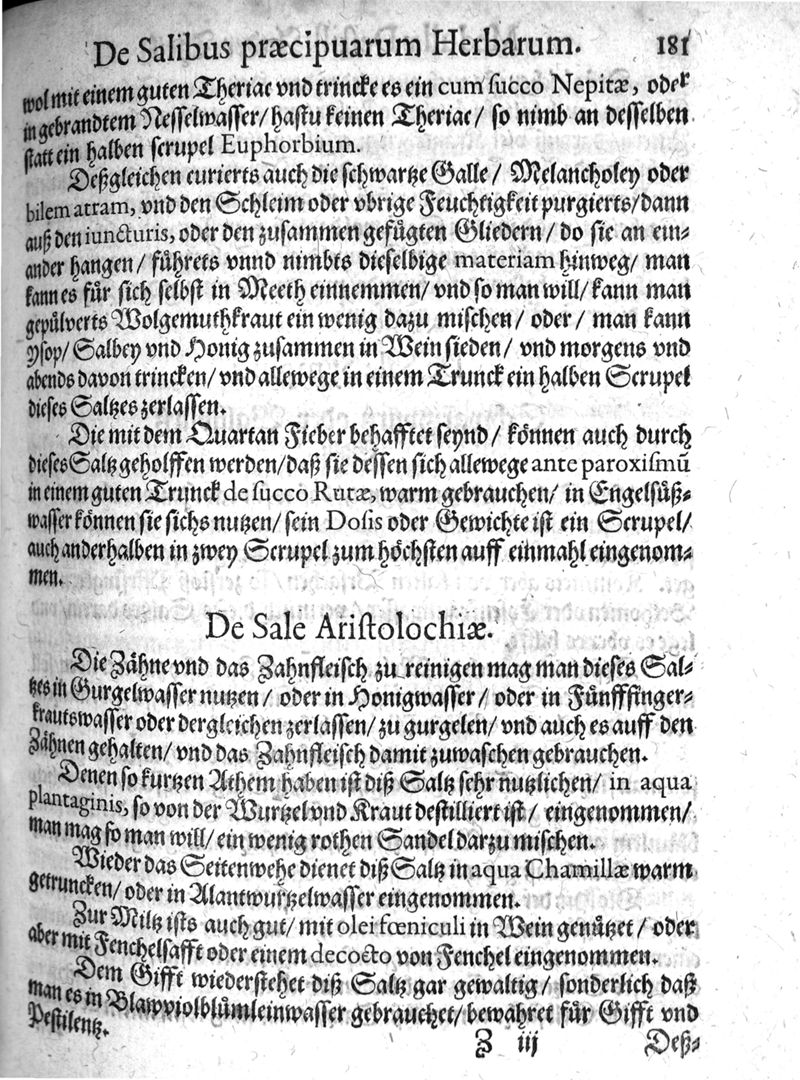 De Salibus præcipuarum Herbarum. 181
wol mit einem guten Theriac vnd trincke es ein cum ſucco Nepitæ, oder
in gebrandtem Neſſelwaſſer/ haſtu keinen Theriac/ ſo nimb an deſſelben
ſtatt ein halben ſcrupel Euphorbium.
Deßgleichen curierts auch die ſchwartze Galle/ Melancholey oder
bilem atram, vnd den Schleim oder vbrige Feuchtigkeit purgierts/ dann
auß den iuncturis, oder den zuſammen gefügten Gliedern/ do ſie an ein⸗
ander hangen/ führets vnnd nimbts dieſelbige materiam hinweg/ man
kann es für ſich ſelbſt in Meeth einnemmen/ vnd ſo man will/ kann man
gepülverts Wolgemuthkraut ein wenig dazu miſchen/ oder/ man kann
yſop/ Salbey vnd Honig zuſammen in Wein ſieden/ vnd morgens vnd
abends davon trincken/ vnd allewege in einem Trunck ein halben Scrupel
dieſes Saltzes zerlaſſen.
Die mit dem Quartan Fieber behafftet ſeynd/ können auch durch
dieſes Saltz geholffen werden/ daß ſie deſſen ſich allewege ante paroxiſmũ
in einem guten Trunck de ſucco Rutæ, warm gebrauchen/ in Engelſüß⸗
waſſer können ſie ſichs nutzen/ ſein Doſis oder Gewichte iſt ein Scrupel/
auch anderhalben in zwey Scrupel zum höchſten auff einmahl eingenom⸗
men.
De Sale Ariſtolochiæ.
Die Zähne vnd das Zahnfleiſch zu reinigen mag man dieſes Sal⸗
tzes in Gurgelwaſſer nutzen/ oder in Honigwaſſer/ oder in Fünfffinger⸗
krautswaſſer oder dergleichen zerlaſſen/ zu gurgelen/ vnd auch es auff den
Zähnen gehalten/ vnd das Zahnfleiſch damit zuwaſchen gebrauchen.
Denen ſo kurtzen Athem haben iſt diß Saltz ſehr nutzlichen/ in aqua
plantaginis, ſo von der Wurtzel vnd Kraut deſtilliert iſt/ eingenommen/
man mag ſo man will/ ein wenig rothen Sandel darzu miſchen.
Wieder das Seitenwehe dienet diß Saltz in aqua Chamillæ warm
getruncken/ oder in Alantwurtzelwaſſer eingenommen.
Zur Miltz iſts auch gut/ mit olei fœniculi in Wein genützet/ oder
aber mit Fenchelſafft oder einem decocto von Fenchel eingenommen.
Dem Gifft wiederſtehet diß Saltz gar gewaltig/ ſonderlich daß
man es in Blawviolblümleinwaſſer gebrauchet/ bewahret für Gifft vnd
Peſtilentz.
Z iij Deß⸗